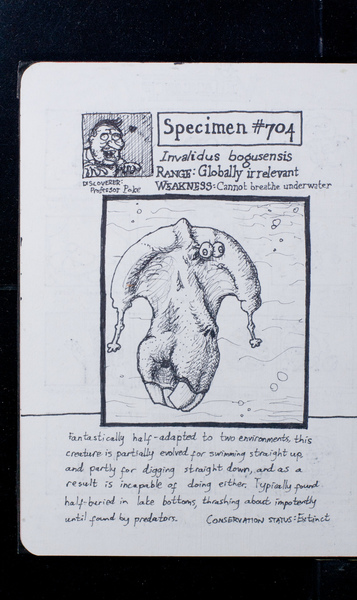 Specimen #704
Invalidus bogusensis
RANGE: Globally irrelevant
DISCOVERER:
Professor Poke
WEAKNESS: Cannot breathe underwater
Fantastically half-adapted to two environments, this
creature is partially evolved for swimming straight up
and partly for digging straight down, and as a
result is incapable of doing either. Typically found
half-buried in lake bottoms, thrashing about impotently
until found by predators. CONSERVATION STATUS: Extinct